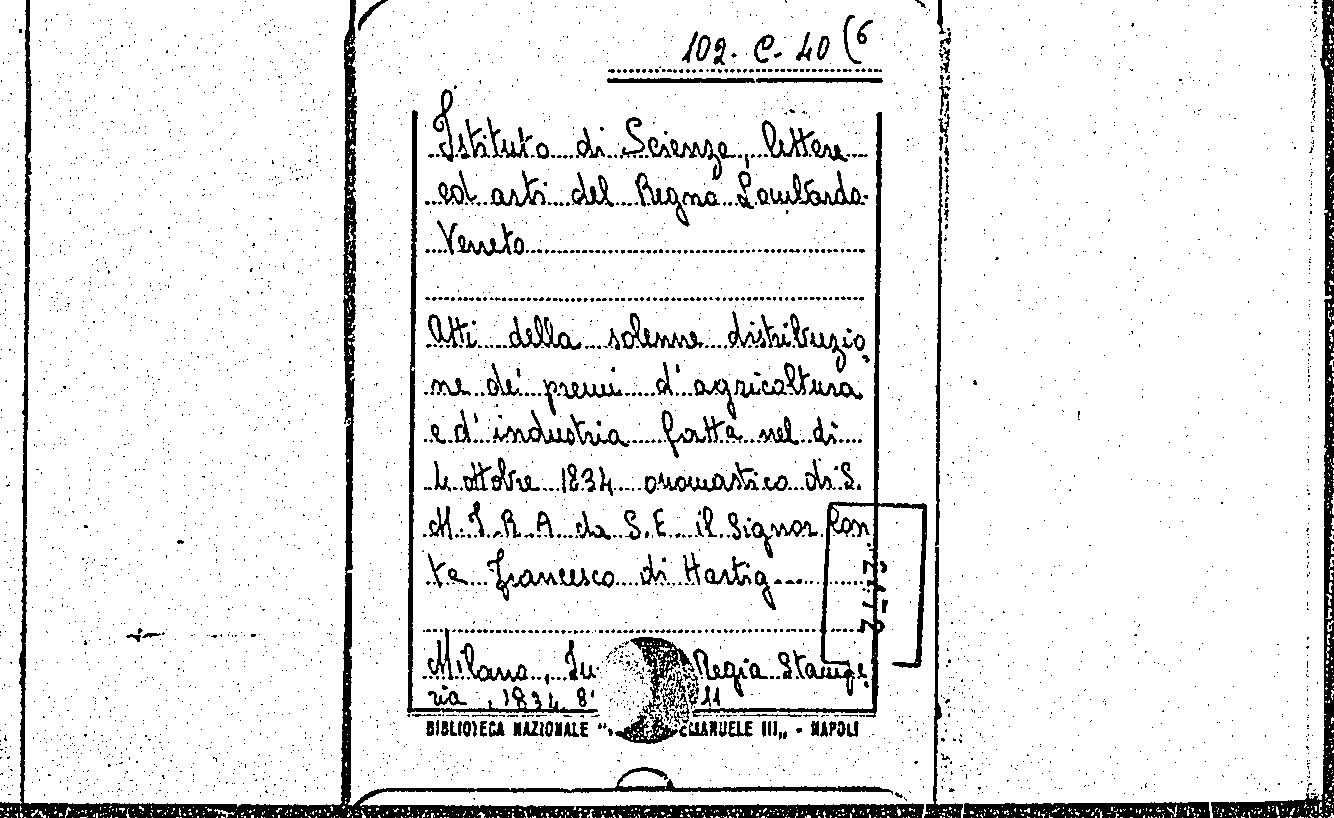 102. C. 40 (6
Istituto di Scienze, lettere
ed arti del Regno Lombardo-
Veneto
Atti della solenne distribuzio
ne dei premi d'agricoltura
e d'industria fatta nel dì
4 ottobre 1834 onomastico di S.
M. I. R. A. da S. E. il Signor Con
te Francesco di Hartig
Milano, Regia Stampe
ria, 1834, 8°
BIBLIOTECA NAZIONALE EMANUELE III„ - NAPOLI